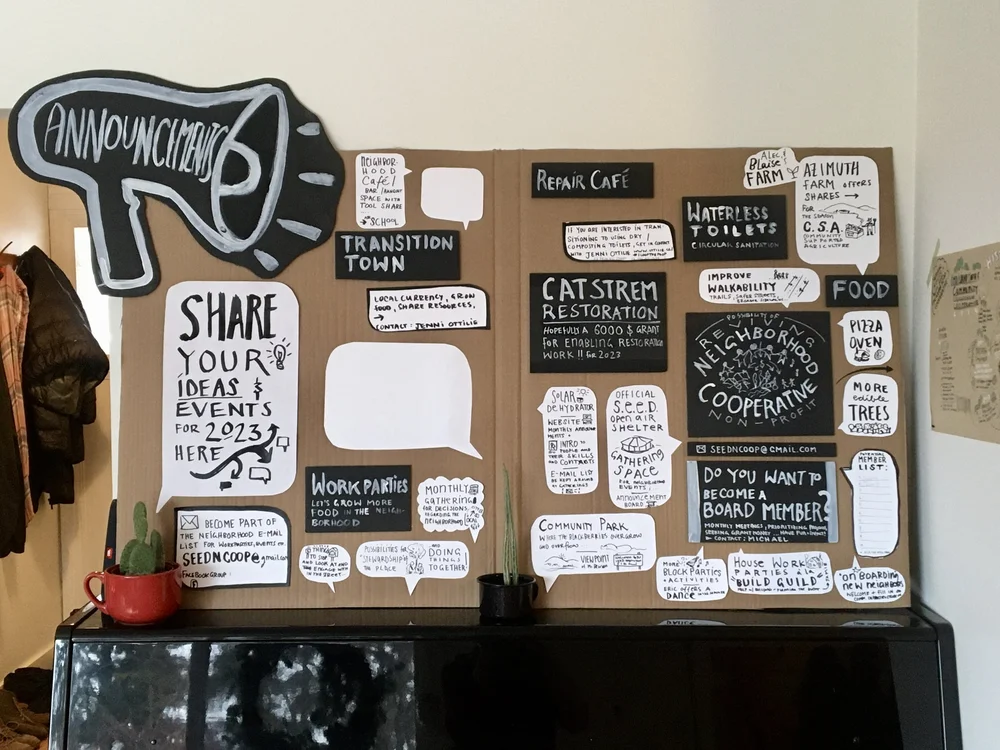 ANNOUNCEMENTS
NEIGHBOR-
HOOD
Café/
BAR/
SPACE WITH
TOOL SHARE
→ SCHOOL
TRANSITION
TOWN
LOCAL CURRENCY, GROW
FOOD, SHARE RESOURCES,
→
CONTACT: JENNI OTTILIE
SHARE
YOUR
IDEAS &
EVENTS
FOR 2023
HERE
WORK PARTIES
LET'S GROW MORE
FOOD IN THE NEIGH-
BORHOOD
MONTHLY
gathering
FOR DECISIONS,
REGARDING THE
NEIGHBORHOOD
BECOME PART OF
THE NEIGHBORHOOD E-MAIL
LIST FOR WORKPARTIES, EVENTS
SEEDNCOOP@gmail.com
FACEBOOK GROUP
THINGS
TO
LOOK AT AND
ENGAGE WITH
IN THE STREET
POSSIBILITIES for
STEWARDSHIP
THE PLACE
AND
DOING
THINGS
TOGETHER
REPAIR CAFÉ
IF YOU ARE INTERESTED IN TRAN
SITIONING TO USING DRY/
COMPOSTING TOILETS, GET IN CONTACT
WITH JENNI OTTILIE
WATERLESS
TOILETS
CIRCULAR SANITATION
ALEC!
Blaise!
FARM
AZIMUTH
FARM OFFERS
SHARES →
FOR
THE SEASON
C.S.A.
COMMUNITY
SUPPORTED
AGRICULTURE
CATSTREM
RESTORATION
HOPEFULLY A 6000 $ GRANT
FOR ENABLING RESTORATION
WORK !! for 2023
IMPROVE
WALKABILITY
TRAILS, SAFER STREETS,
FOOD
POSSIBILITY OF
REVIVING
NEIGHBORHOOD
COOPERATIVE
NON-PROFIT
PIZZA
OVEN
MORE
edible
TREES
SOLAR
DEHYDRATOR
WEBSITE
MONTHLY ANNOUNCE
MENTS +
INTRO TO
PEOPLE AND
THEIR SKILLS
AND CONTACTS
E-MAIL LIST
OFFICIAL
S.e.e.D.
open air
SHELTER
GATHERING
SPACE
FOR
EVENTS,
announcement
BOARD
SEEDNCOOP@GMAIL.COM
DO YOU WANT TO
BECOME A
BOARD MEMBER?
MONTHLY MEETINGS, PRIORITIZING PROJECTS,
SEEKING GRANT MONEY ... HAVE FUN
CONTACT: MICHAEL
POTENTIAL
MEMBER
LIST:
COMMUNITY PARK
WHERE THE BLACKBERRIES OVERGROW
VIEWPOINT
MORE
BLOCK PARTIES
+ ACTIVITIES
ERIC OFFERS A
DANCE
HOUSE WORK
PARTIES
BUILD GUILD
"ON BOARDING
new neighbors
WELCOME +